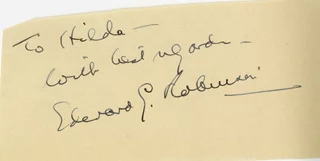 To Hilda –
With best regards –
Edward G. Robinson